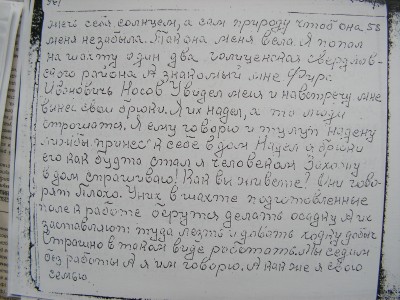 жей себя солнцем, а сам природу чтоб она 58
меня незабыла. Так она меня вела. Я попал
на шахту один два голицинская свердлов-
ского района А знакомый мне Фирс
Ивановичь Носов Увидел меня и навстречу мне
вынес свои брюки. Я их надел, а то люди
страшатся. Я ему говорю и тулуп надену
лижбы принес к себе в дом Надел я брюки
его как будто стал я человеком Захожу
в дом спрашиваю! Как вы живете? Они гово-
рят плохо. У них в шахте подготовленные
поле к работе берутся делать осадку А их
заставляют туда лезть и давать ходку добыч
Страшно в таком виде работать. Мы седим
без работы А я им говорю. А как же я свою
семью